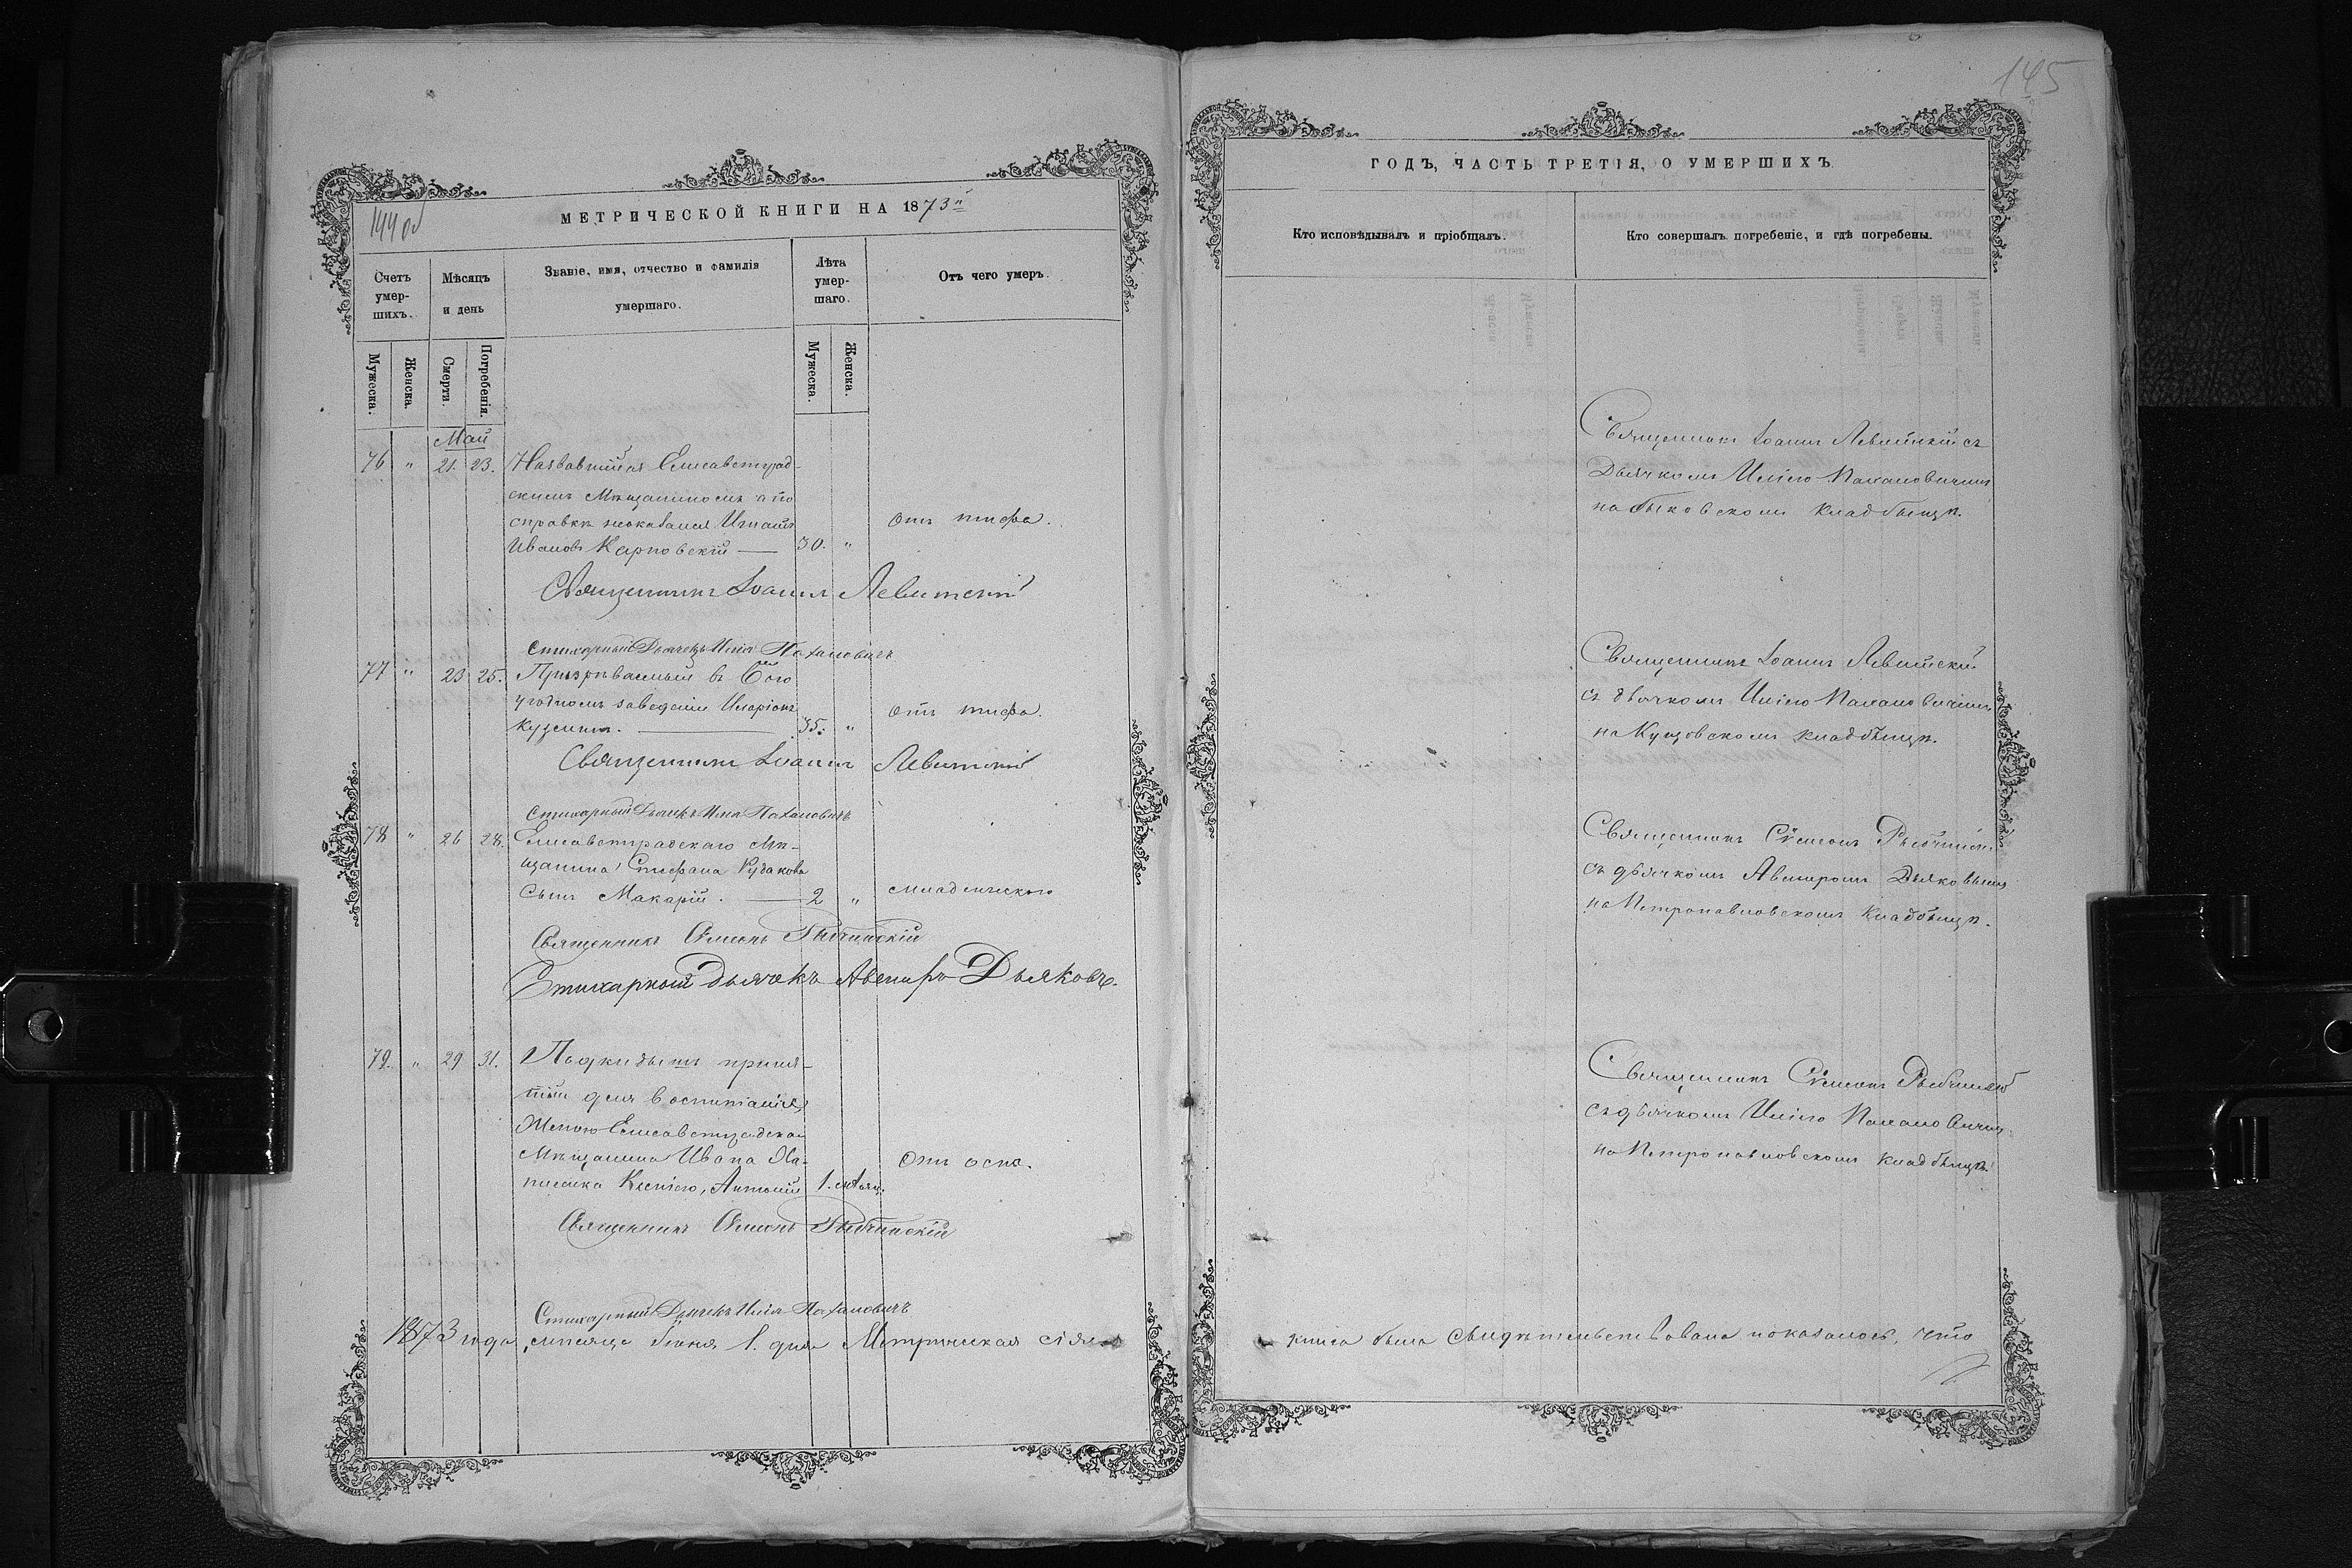 144 об
МЕТРИЧЕСКОЙ КНИГИ НА 1873й
Счетъ умер-шихъ.
Мѣсяцъ и день
Званіе, имя, отчество и фамилія умершаго.
Лѣта умер-шаго.
Отъ чего умеръ.
Мужеска.
Женска.
Смерти.
Погребенія.
Мужеска.
Женска.
Май
76 " 21. 23. Назвавшійся Елисаветград-
скимъ Мѣщаниномъ а по
справкѣ неоказался Игнатъ
Ивановъ Карповскій — 30. " отъ тифа.
Священникъ Іоаннъ Левитскій
Стихарный Дьячекъ Илія Паханович
77 " 23 25. Призрѣваемый въ Бого
угодномъ заведеніи Иларіонъ
Кузьмин. — 35. " отъ тифа.
Священникъ Іоаннъ Левитскій
Стихарный Дьячекъ Илія Пахановичъ
78 " 26 28. Елисаветградскаго Мѣ-
щанина Стефана Рудакова
Сынъ Макарій. — 2 " младенческаго
Священникъ Сѵмеонъ Рыбчинскій
Стихарный дьячекъ Авениръ Дьяковъ.
79. " 29 31. Подкидышъ приня-
тый для воспитанія
Женою Елисаветградскаго
Мѣщанина Ивана
Ксенією, Антоній 1. мѣсяц. отъ оспы.
Священникъ Сѵмеонъ Рыбчинскій
Стихарный Дьячекъ Илія Пахановичъ
1873 года, мѣсяца Іюня 1. дня Метрическая сія
145
ГОДЪ, ЧАСТЬ ТРЕТІЯ, О УМЕРШИХЪ
Кто исповѣдывалъ и пріобщалъ.
Кто совершалъ погребеніе, и гдѣ погребены.
Священникъ Іоаннъ Левитскій съ
Дьячкомъ Илією Пахановичемъ
на Быковскомъ кладбищѣ.
Священникъ Іоаннъ Левитскій
съ дьячкомъ Илією Пахановичемъ
на Кущовскомъ кладбищѣ.
Священникъ Сѵмеонъ Рыбчинскій
съ дьячкомъ Авениромъ Дьяковымъ
на Петропавловскомъ кладбищѣ.
Священникъ Сѵмеонъ Рыбчинскій
съ дьячкомъ Илією Пахановичемъ
на Петропавловскомъ кладбищѣ
книга была свидѣтельствована показалось, что